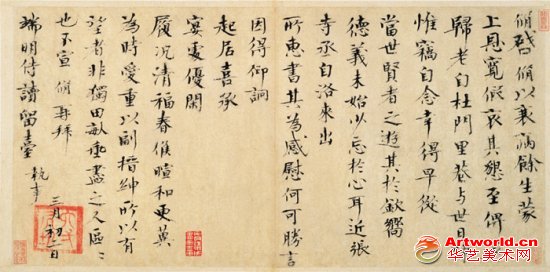 脩啓脩以衰病餘生蒙
上恩寬假哀其懇至俾
歸老自杜門里巷與世日
惟竊自念幸得早從
當世賢者之遊其於欽嚮
德義未始少忘於心耳近張
寺丞自洛來出
所惠書其為感慰何可勝言
因得仰詢
起居喜承
宴處優閑
履況清福春候暄和更冀
為時愛重以副搢紳所以有
望者非獨田畝垂盡之人區〻
也不宣脩再拜
端明侍讀留臺 執事
三月初二日
Artworld.cn
华艺美术网